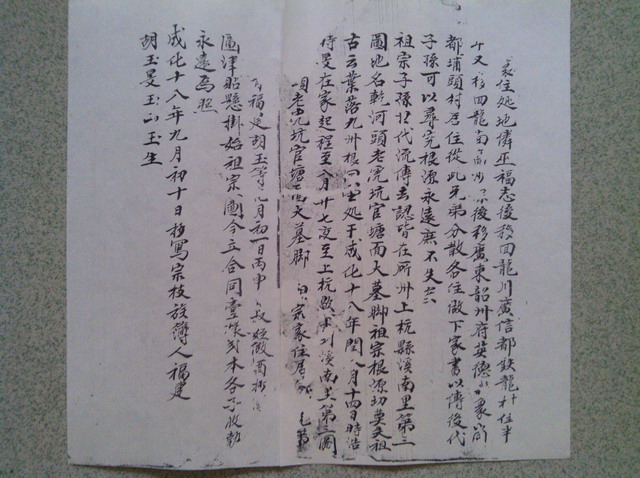 家住处地僯巫福志後移回龍川廣信都鉄龍村住半
年又移回龍南 後移廣東韶州府英德
都埔頭村居住從此兄弟分散各住做下家書以傳後代
子孫可以尋究根源永遠庶不失
祖宗子孫代流傳去認皆在所州上杭縣溪南里第三
圖地名乾河頭老虎坑官塘面大墓脚祖宗根源切莫失祖
古云葉落九州根 一処于成化十八年閏八月十四日時浩
時旻在家起程至八月廿七夜至上杭 溪南里第三圖
垻老虎坑官塘面大墓脚 宗家住居
福旻胡玉 月初一日丙申
區津貼懸掛始祖宗圖今立合同壹樣 本各子收執
永遠為照
成化十八年九月初十日抄寫宗枝族簿人福建
胡玉旻玉山玉生